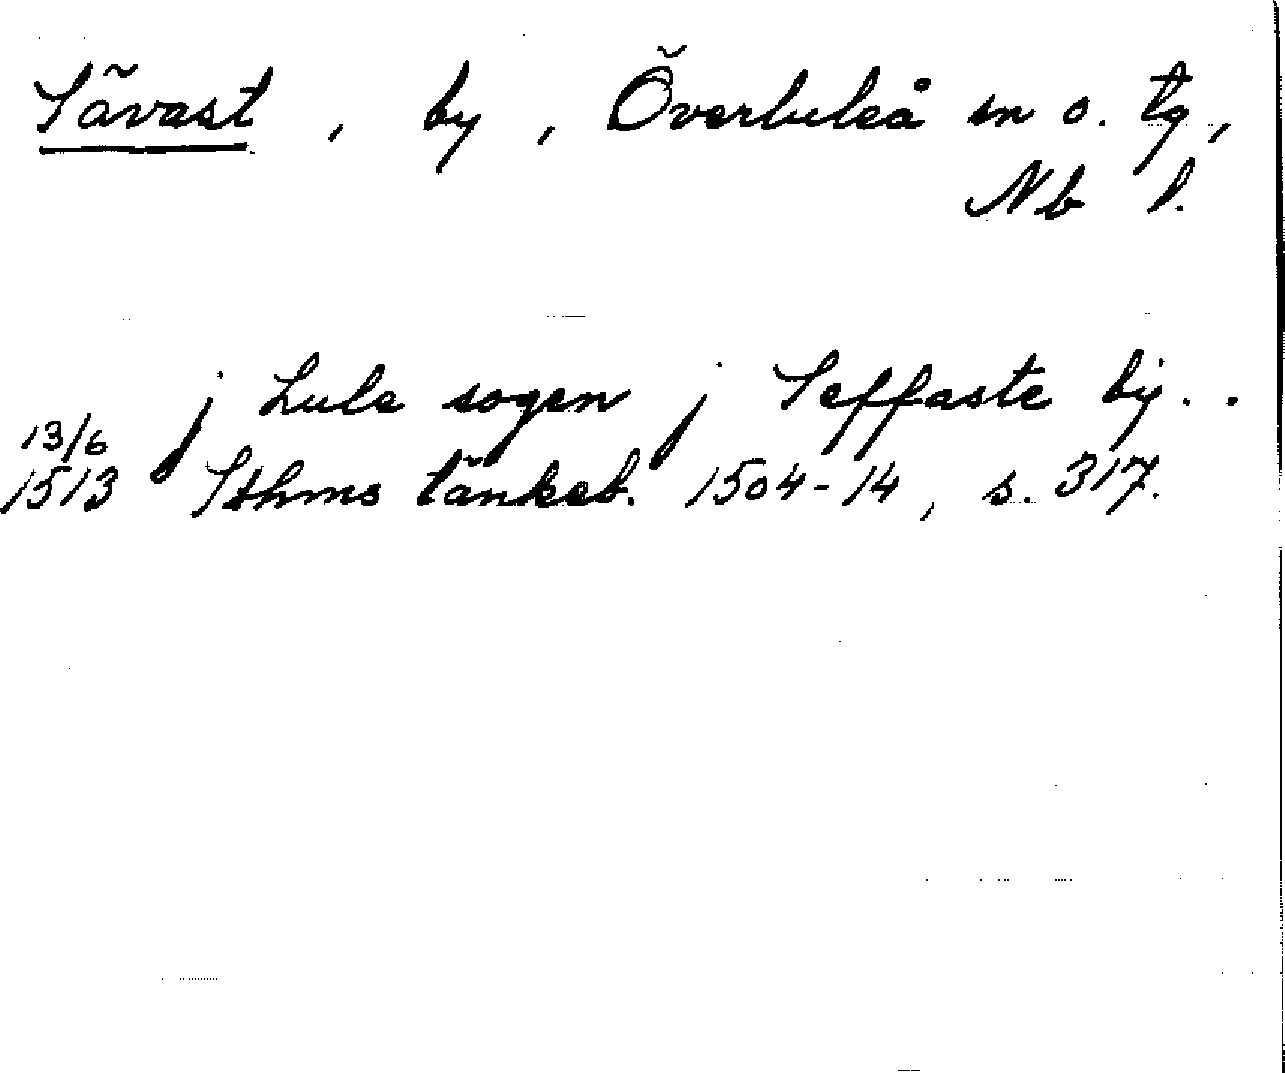 Sävast, by, Överluleå sn o. tg,
Nb l.
j Lule sogen j Seffaste bij..
13/6
1513 Sthms tänkeb. 1504-14, s. 317.